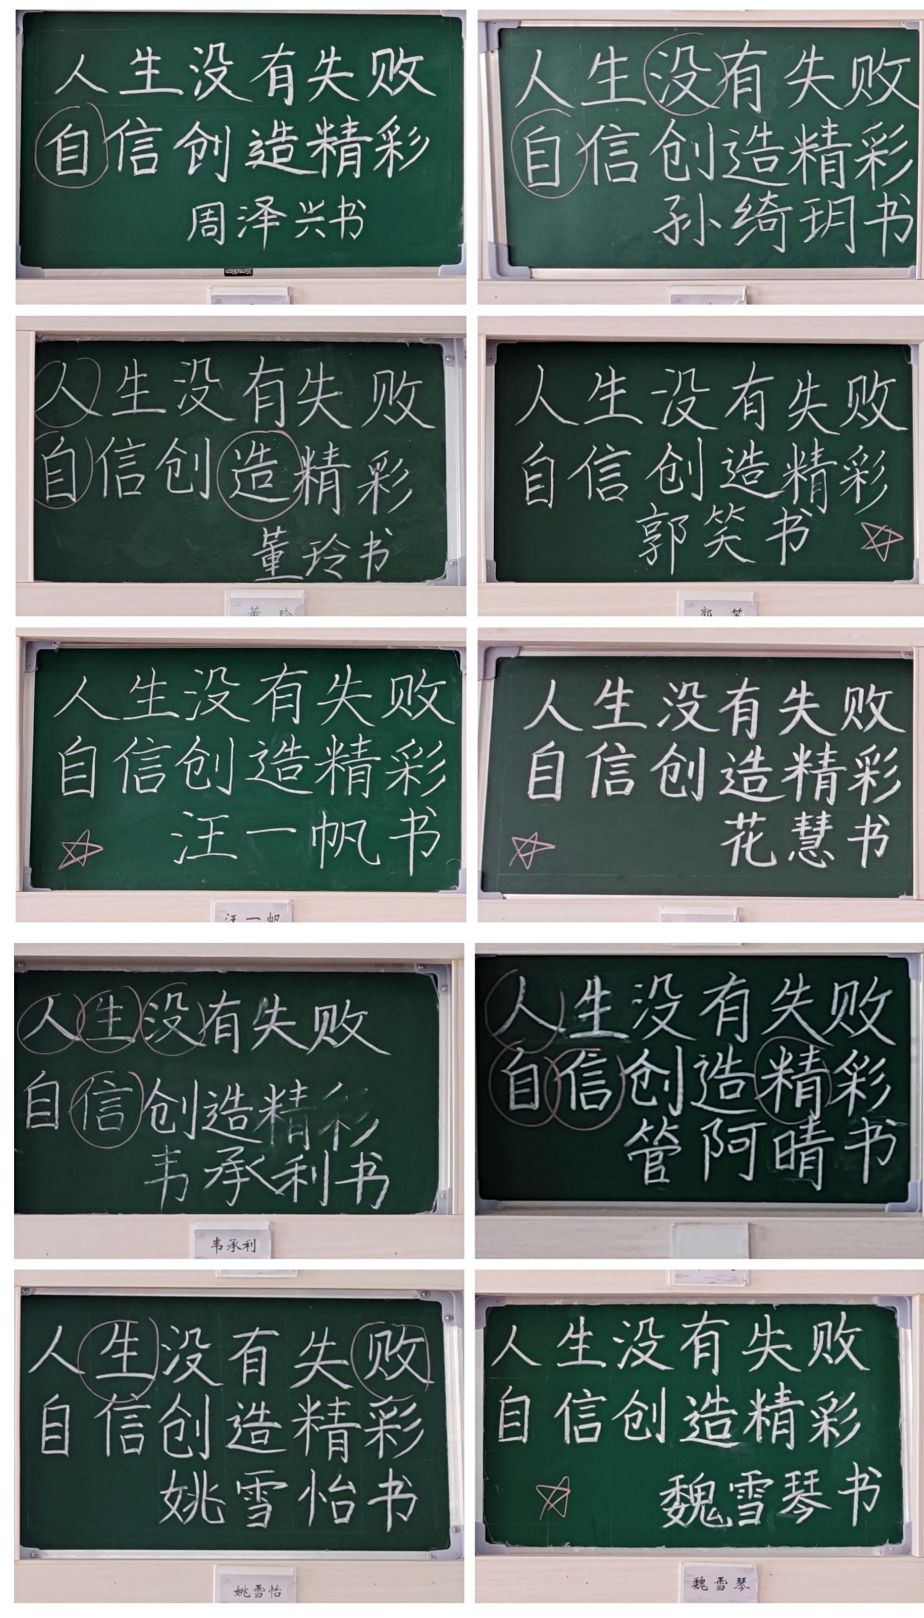 人生没有失败
自信创造精彩
周泽兴书
人生没有失败
自信创造精彩
孙绮玥书
人生没有失败
自信创造精彩
董玲书
董 玲
人生没有失败
自信创造精彩
郭笑书
郭 笑
人生没有失败
自信创造精彩
汪一帆书
汪一帆
人生没有失败
自信创造精彩
花慧书
人生没有失败
自信创造精彩
韦承利书
韦承利
人生没有失败
自信创造精彩
管阿晴书
人生没有失败
自信创造精彩
姚雪怡书
姚雪怡
人生没有失败
自信创造精彩
魏雪琴书
魏雪琴